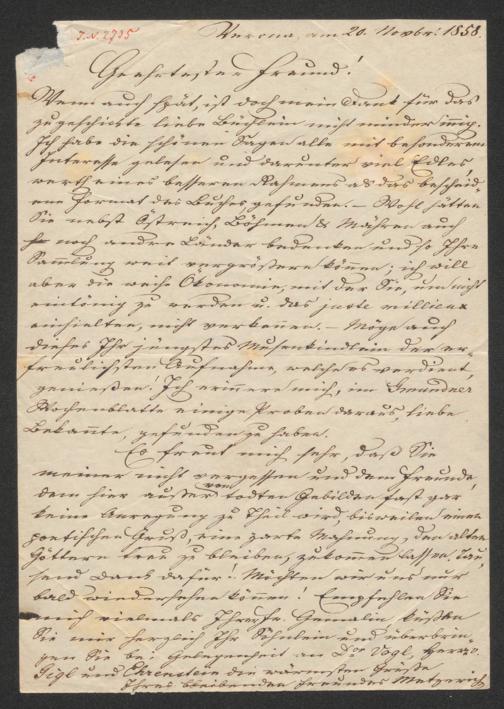 J.N. 2795
Verona, am 20. Novbr: 1858.
Geehrtester Freund!
Wenn auch spät, ist doch mein Dank für das
zugeschickte liebe Büchlein nicht minder innig.
Ich habe die schönen Sagen alle mit besonderem
Interesse gelesen und darunter viel Edles,
werth eines besseren Rahmens als das bescheid-
ene Format des Buches gefunden. – Wohl hätten
Sie nebst Östreich, Böhmen & Mähren auch
noch andere Länder bedenken und so Ihre
Sammlung weit vergrößern können; ich will
aber die weise Ökonomie, mit der Sie, um nicht
eintönig zu werden u. das juste millieux
einhielten, nicht verkennen. – Möge auch
dieses Ihr jüngstes Musenkindlein der er-
freulichsten Aufnahme, welche es verdient
genießen! Ich erinnere mich, im Gmundner
Wochenblatte einige Proben daraus, liebe
Bekannte, gefunden zu haben.
Es freut mich sehr, daß Sie
meiner nicht vergessen und dem Freunde,
dem hier außer von todten Gebilden fast gar
keine Anregung zu Theil wird, bisweilen einen
poetischen Gruß, eine zarte Mahnung, den alten
Göttern treu zu bleiben, zukommen lassen, Tau-
send Dank dafür! Möchten wir uns nur
bald wiedersehen können! Empfehlen Sie
mich vielmals Ihrer Fr. Gemalin, küßen
Sie mir herzlich Ihr Söhnlein und überbrin-
gen Sie bei Gelegenheit an Dor Vogl,
Gigl und Ehrenstein die wärmsten Grüße
Ihres bleibenden Freundes Metzerich